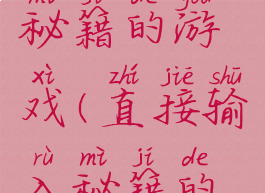 mì jí de yóu
秘籍的游
xì zhí jiē shū
戏(直接输
rù mì jí de
入秘籍的